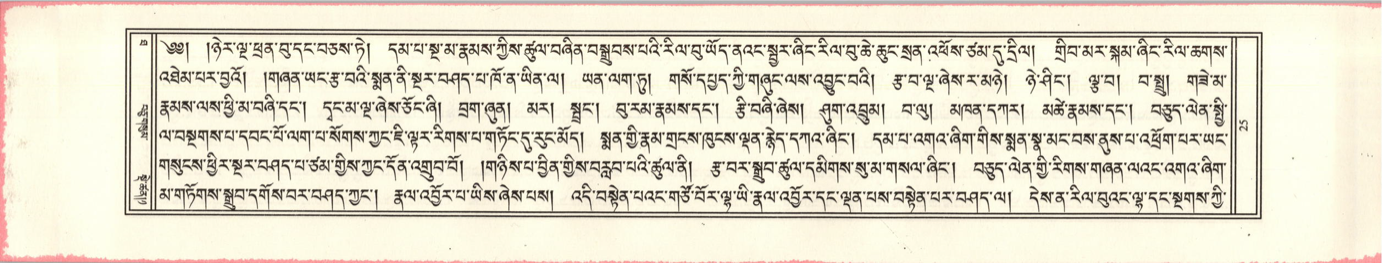 ༄༅། །ཉེར་ལྔ་ཕྲན་བུ་དང་བཅས་ཏེ། དམ་པ་སྔ་མ་རྣམས་ཀྱིས་ཚུལ་བཞིན་བསྒྲུབས་པའི་རིལ་བུ་ཡོད་ནའང་སྦྱར་ཞིང་རིལ་བུ་ཆེ་ཆུང་སྲན་འཕོས་ཙམ་དུ་དྲིལ། གྲིབ་མར་སྐམ་ཞིང་རིལ་ཆགས་
འཐེམ་པར་བྱའོ། །གཞན་ཡང་རྩ་བའི་སྨན་ནི་སྔར་བཤད་པ་ཁོ་ན་ཡིན་ལ། ཡན་ལག་ཏུ། གསོ་དཔྱད་ཀྱི་གཞུང་ལས་འབྱུང་བའི། རྩ་བ་ལྔ་ཞེས་ར་མཉེ། ཉེ་ཤིང་། ལྕ་བ། བ་སྤྲུ། གཟེ་མ་
རྣམས་ལས་ཕྱི་མ་བཞི་དང་། དྭང་མ་ལྔ་ཞེས་ཅོང་ཞི། བྲག་ཞུན། མར། སྦྲང་། བུ་རམ་རྣམས་དང་། རྩི་བཞི་ཞེས། ཤུག་འབྲུམ། བ་ལུ། མཁན་དཀར། མཚེ་རྣམས་དང་། བཅུད་ལེན་སྤྱི་
ལ་བསྔགས་པ་དབང་པོ་ལག་པ་སོགས་ཀྱང་ཇི་ལྟར་རིགས་པ་གཏོང་དུ་རུང་མོད། སྨན་གྱི་རྣམ་གྲངས་ཁུངས་ལྡན་རྙེད་དཀའ་ཞིང་། དམ་པ་འགའ་ཞིག་གིས་སྨན་སྣ་མང་བས་ནུས་པ་འཕྲོག་པར་ཡང་
གསུངས་ཕྱིར་སྔར་བཤད་པ་ཙམ་གྱིས་ཀྱང་དོན་འགྲུབ་བོ། །གཉིས་པ་བྱིན་གྱིས་བརླབ་པའི་ཚུལ་ནི། རྩ་བར་སྒྲུབ་ཚུལ་དམིགས་སུ་མ་གསལ་ཞིང་། བཅུད་ལེན་གྱི་རིགས་གཞན་ལའང་འགའ་ཞིག་
མ་གཏོགས་སྒྲུབ་དགོས་བར་བཤད་ཀྱང་། རྣལ་འབྱོར་པ་ཡིས་ཞེས་པས། འདི་བསྟེན་པའང་གཙོ་བོར་ལྷ་ཡི་རྣལ་འབྱོར་དང་ལྡན་པས་བསྟེན་པར་བཤད་ལ། དེས་ན་རིལ་བུའང་ལྷ་དང་སྔགས་ཀྱི་
25